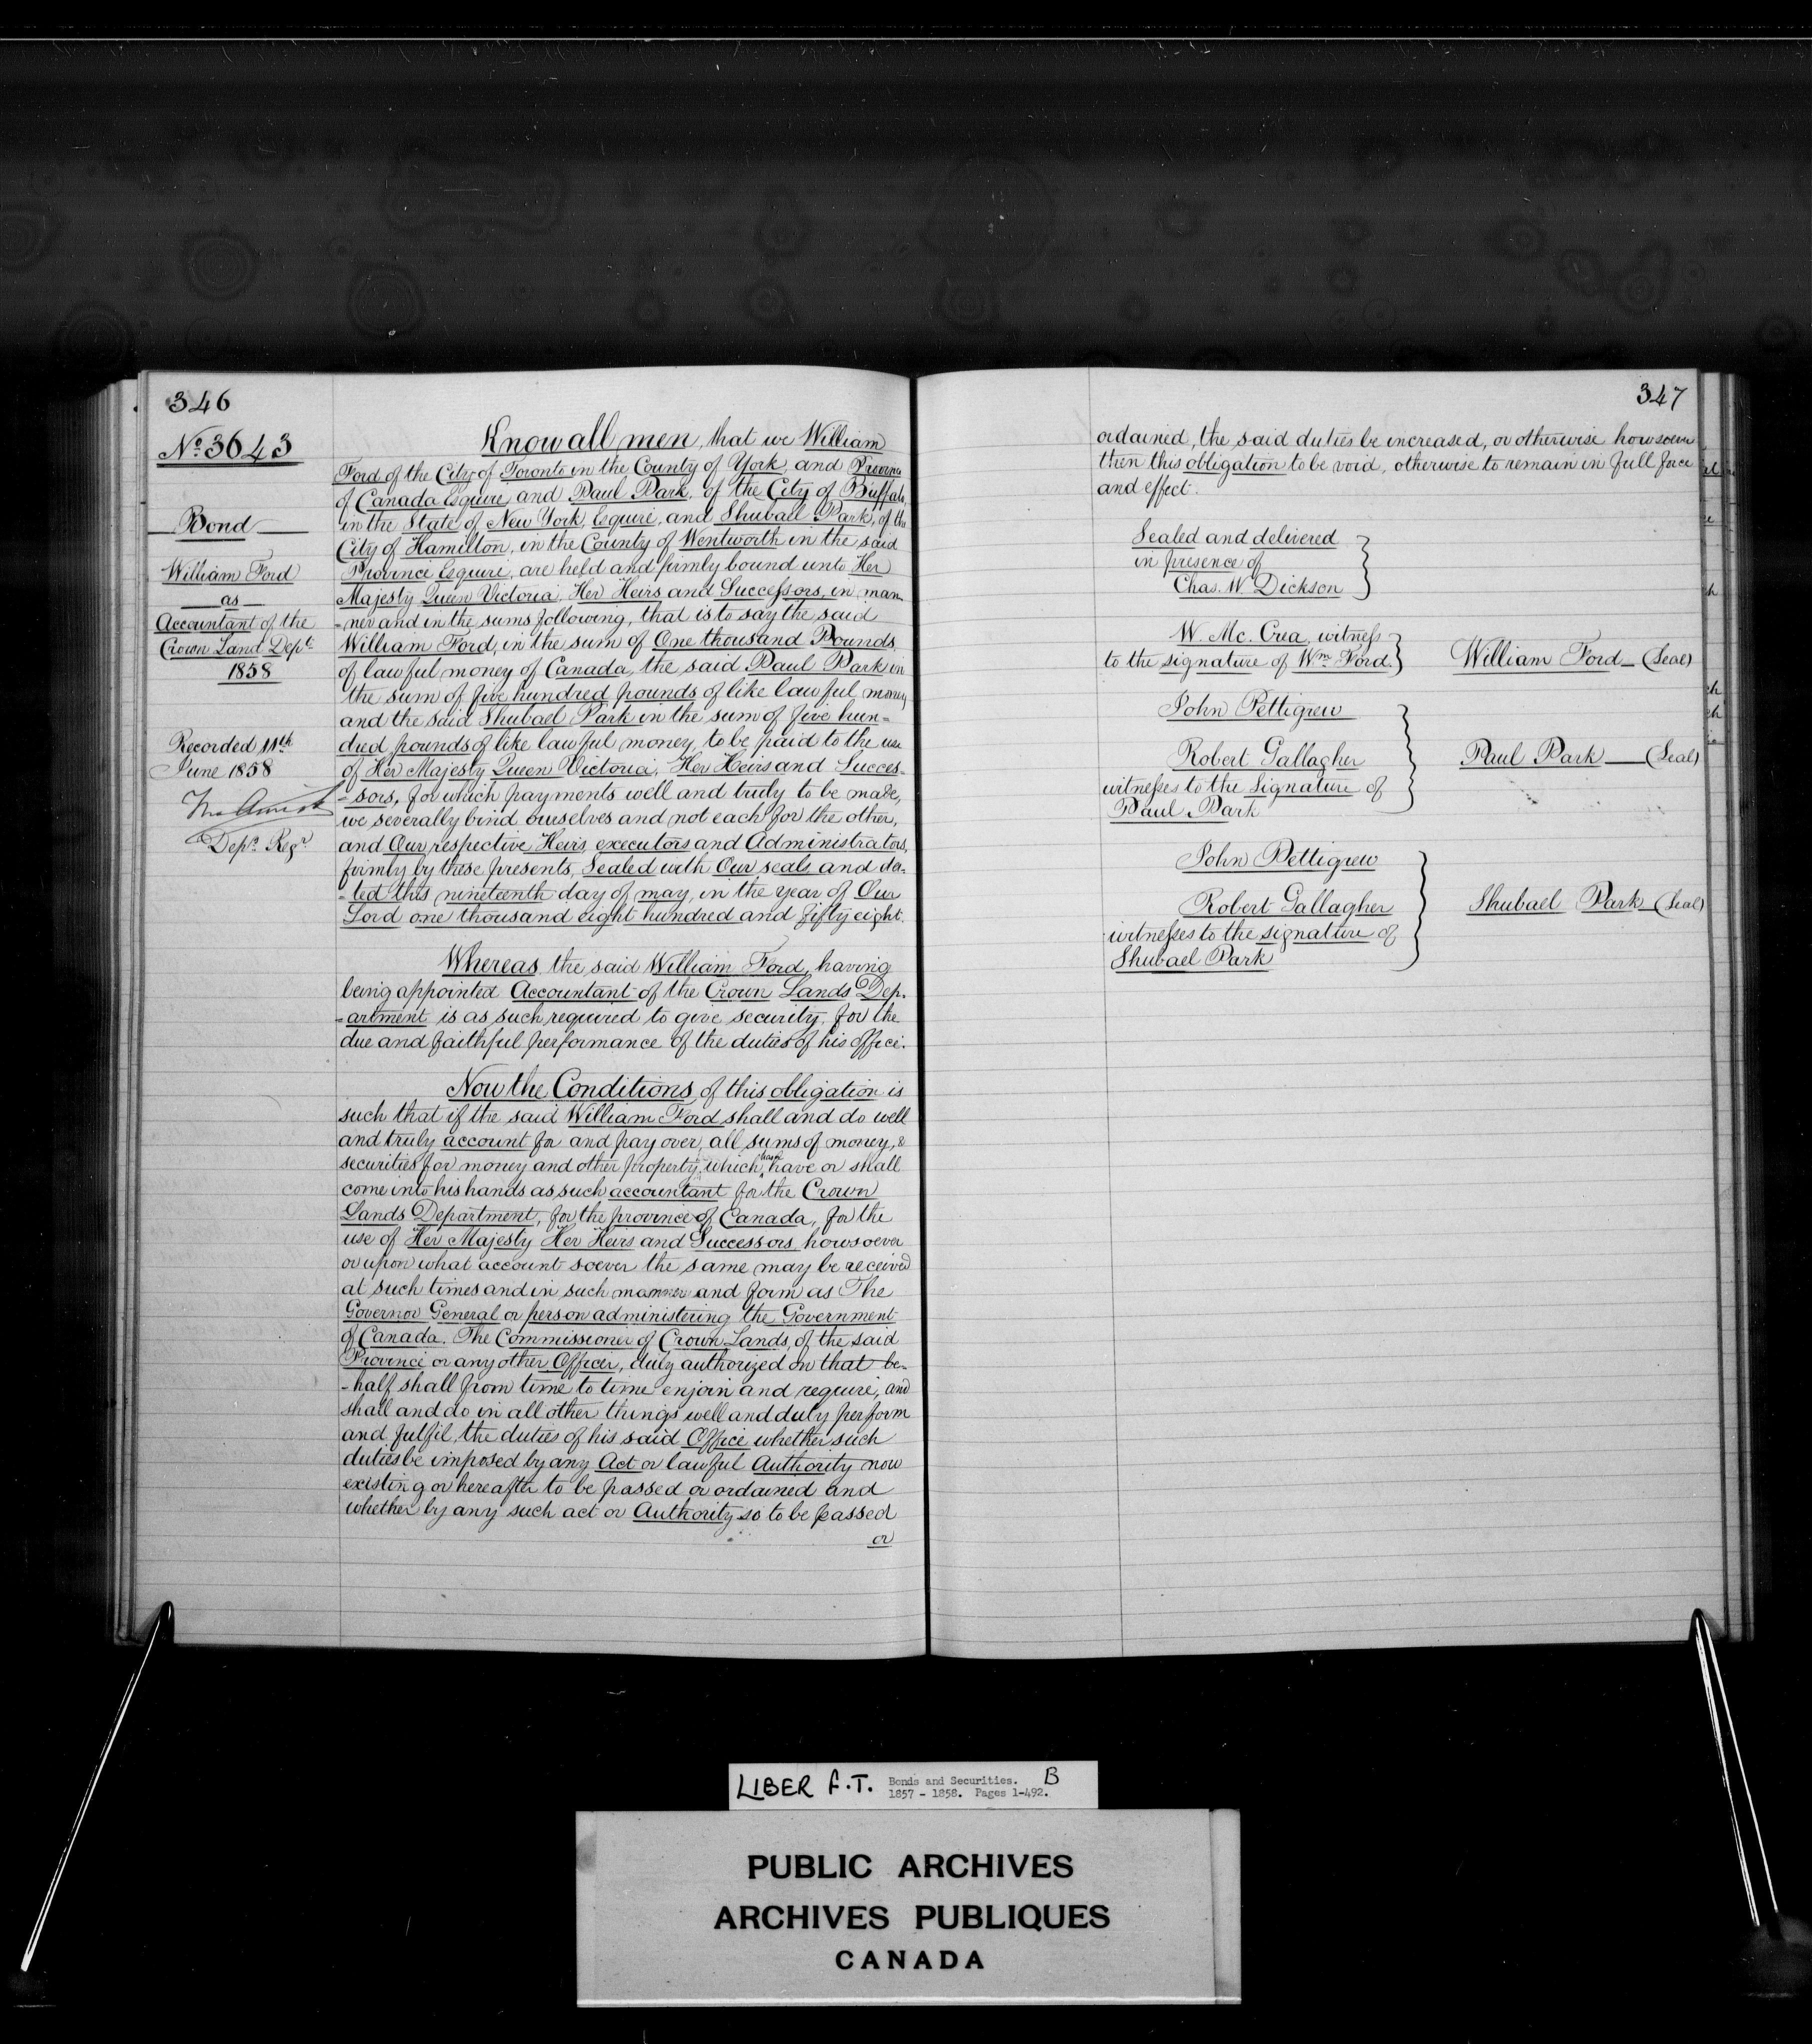 346
No. 3643
Bond
William Ford
as
Accountant of the
Crown Land Dept.
1858
Recorded 11th
June 1858
Depy. Regr
Know all men, that we William
Ford of the City of Toronto in the County of York, and Province
of Canada Esquire and Paul Park, of the City of Buffalo,
in the State of New York, Esquire, and Shubael Park, of the
City of Hamilton, in the County of Wentworth in the said
Province Esquire, are held and firmly bound unto Her
Majesty Queen Victoria, Her Heirs and Successors, in man-
-ner and in the sums following, that is to say the said
William Ford, in the sum of One thousand Pounds,
of lawful money of Canada, the said Paul Park in
the sum of five hundred pounds of like lawful money
and the said Shubael Park in the sum of five hun=
dred pounds of like lawful money, to be paid to the use
of Her Majesty Queen Victoria, Her Heirs and Succes=
=sors, for which payments well and truly to be made,
we severally bind ourselves and not each for the other,
and Our respective Heirs, executors and Administrators,
firmly by these presents, Sealed with Our seals and da-
-ted this nineteenth day of may, in the year of Our
Lord one thousand eight hundred and fifty eight.
Whereas the said William Ford, having
being appointed Accountant of the Crown Lands Dep.
-artment is as such required to give security, for the
due and faithful performance of the duties of his office.
Now the Conditions of this obligation is
such that if the said William Ford shall and do well
and truly account for and pay over, all sums of money, &
securities for money and other property, which have or shall
come into his hands as such accountant for the Crown
Lands Department, for the province of Canada, for the
use of Her Majesty Her Heirs and Successors howsoever
or upon what account soever the same may be received
at such times and in such manner and form as The
Governor General or person administering the Government
of Canada. The Commissioner of Crown Lands, of the said
Province or any other Officer, duly authorized on that be-
-half shall from time to time enjoin and require, and
shall and do in all other things well and duly perform
and fulfil, the duties of his said Office whether such
duties be imposed by any Act or lawful Authority now
existing or hereafter to be passed or ordained and
whether by any such act or Authority so to be passed
or
347
ordained, the said duties be increased, or otherwise howsoever
then this obligation to be void, otherwise to remain in full force
and effect.
Sealed and delivered
in presence of
Chas. W. Dickson
W. Mc. Crea, witness
to the signature of Wm. Ford. William Ford (Seal)
John Pettigrew
Robert Gallagher Paul Park (Seal)
witnesses to the Signature of
Paul Park
John Pettigrew
Robert Gallagher Shubael Park (Seal)
witnesses to the signature of
Shubael Park
LIBER F.T. Bonds and Securities. B
1857 - 1858. Pages 1-492.
PUBLIC ARCHIVES
ARCHIVES PUBLIQUES
CANADA